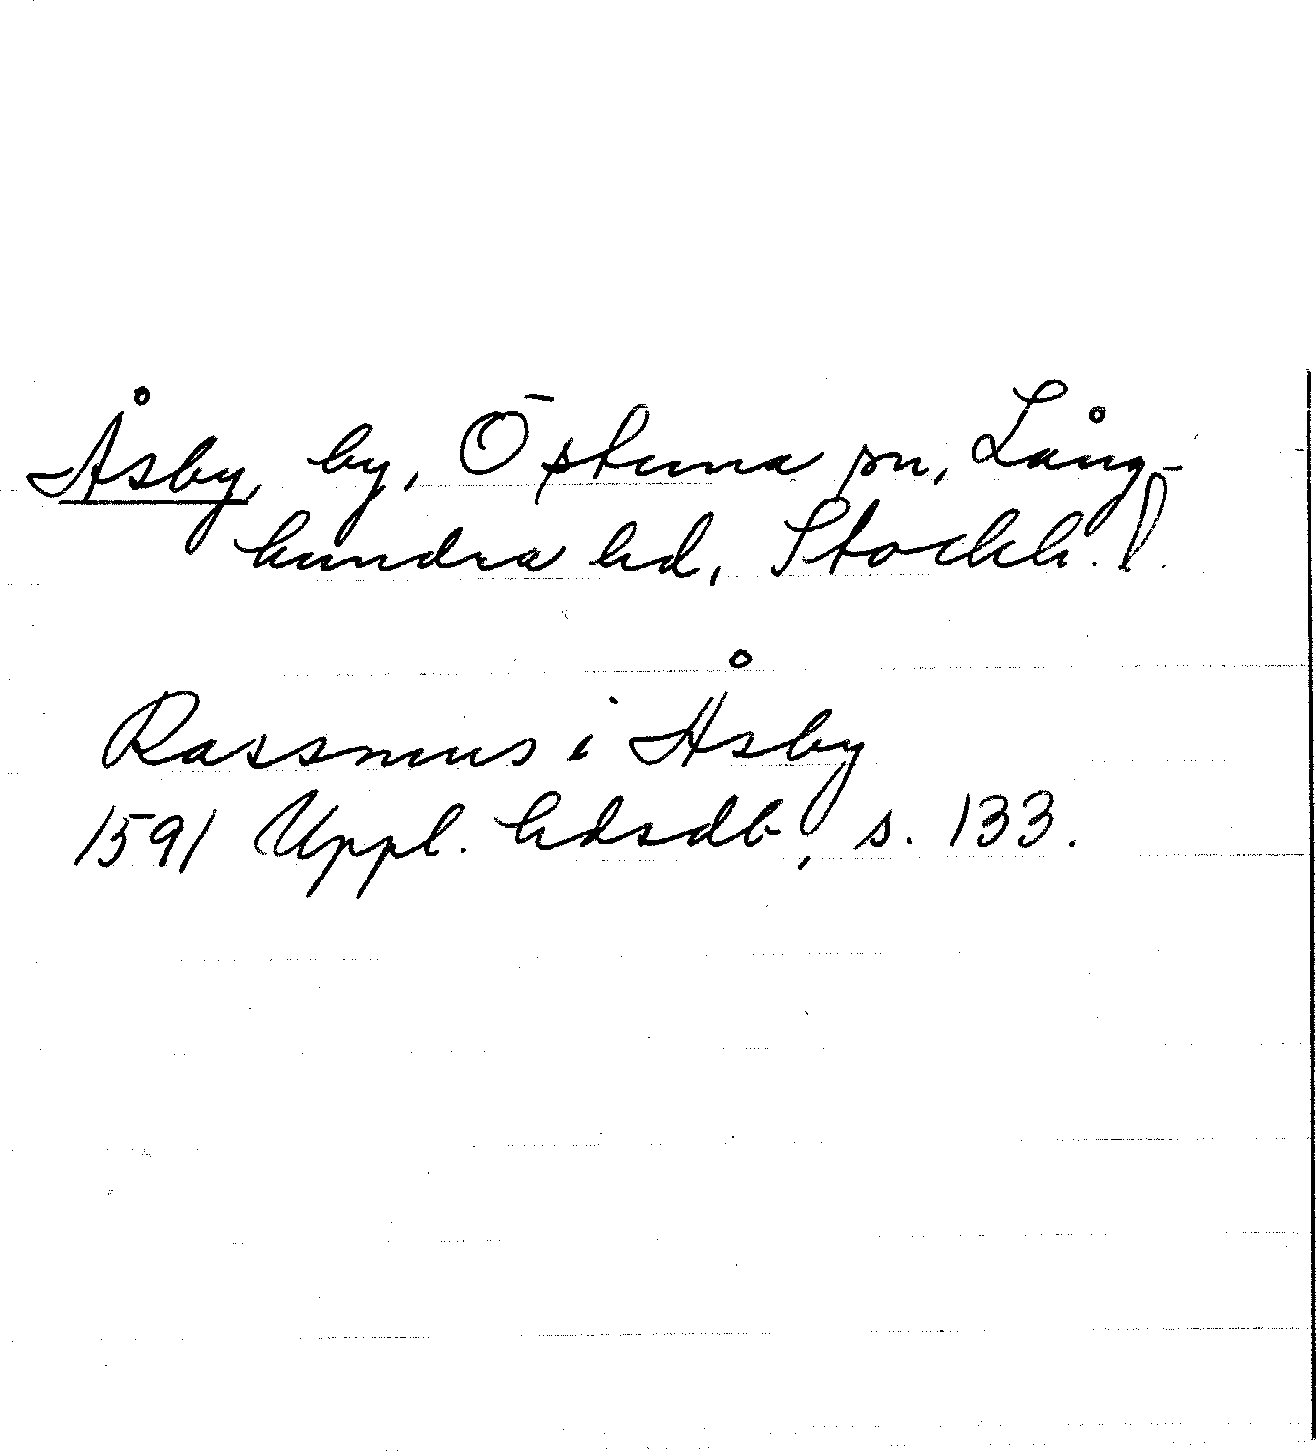 Åsby, by, Östuna sn, Lång-
hundra hd, Stockh. l.
Rassmus i Åsby
1591 Uppl. hdsdb, s. 133.